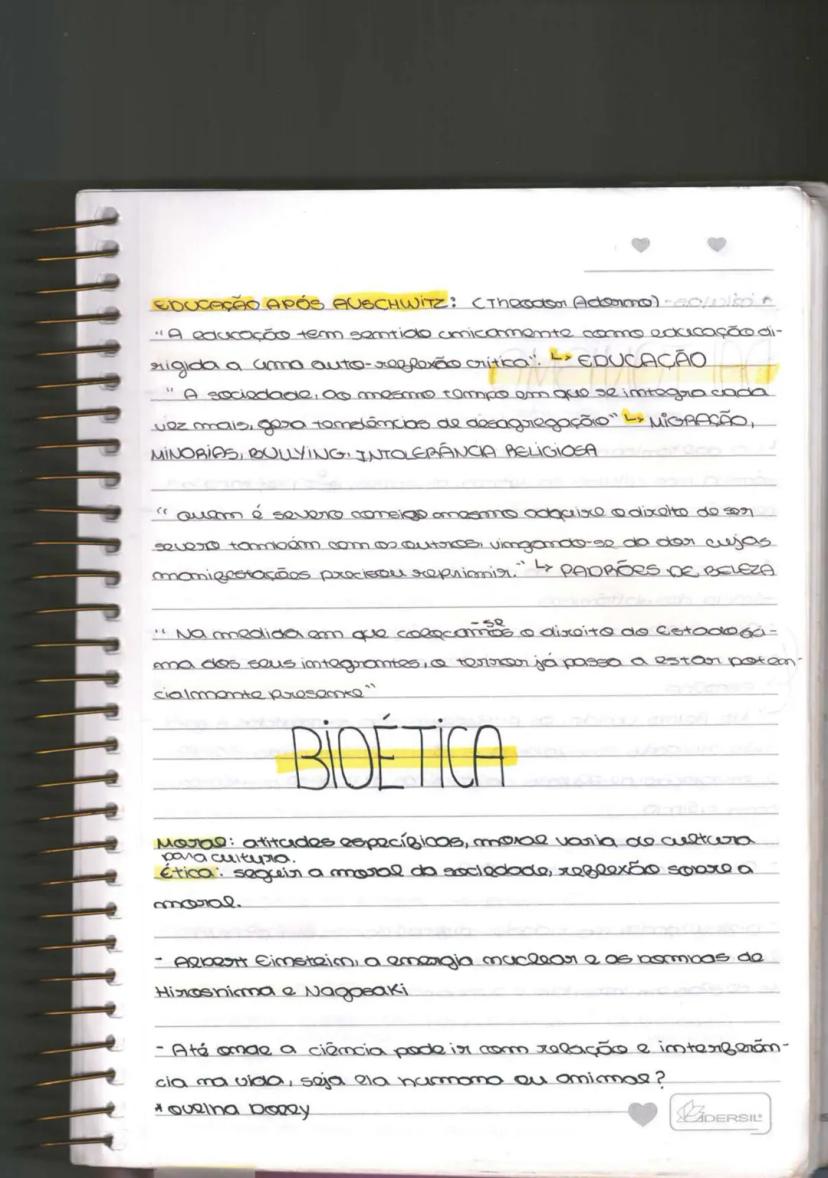 EDUCAÇÃO APÓS AUSCHWITZ: (Theodor Adorno)
"A educação tem sentido unicamente como educação di-
rigida a uma auto-reflexão crítica". ↳ EDUCAÇÃO
" A sociedade, ao mesmo tempo em que se integra cada
vez mais, gera tendências de desagregação" ↳ MIGRAÇÃO,
MINORIAS, BULLYING, INTOLERÂNCIA RELIGIOSA
" Quem é severo consigo mesmo adquire o direito de ser
severo também com os outros, vingando-se da dor cujas
manifestações precisou reprimir." ↳ PADRÕES DE BELEZA
-se
" Na medida em que colocamos o direito do Estado aci-
ma dos seus integrantes, o terror já passa a estar poten-
cialmente presente"
BIOÉTICA
Moral: atitudes específicas, moral varia de cultura
para cultura.
Ética: seguir a moral da sociedade, reflexão sobre a
moral.
- Albert Einstein, a energia nuclear e as bombas de
Hiroshima e Nagasaki
- Até onde a ciência pode ir com relação e interferên-
cia na vida, seja ela humana ou animal?
* Ovelha Dolly